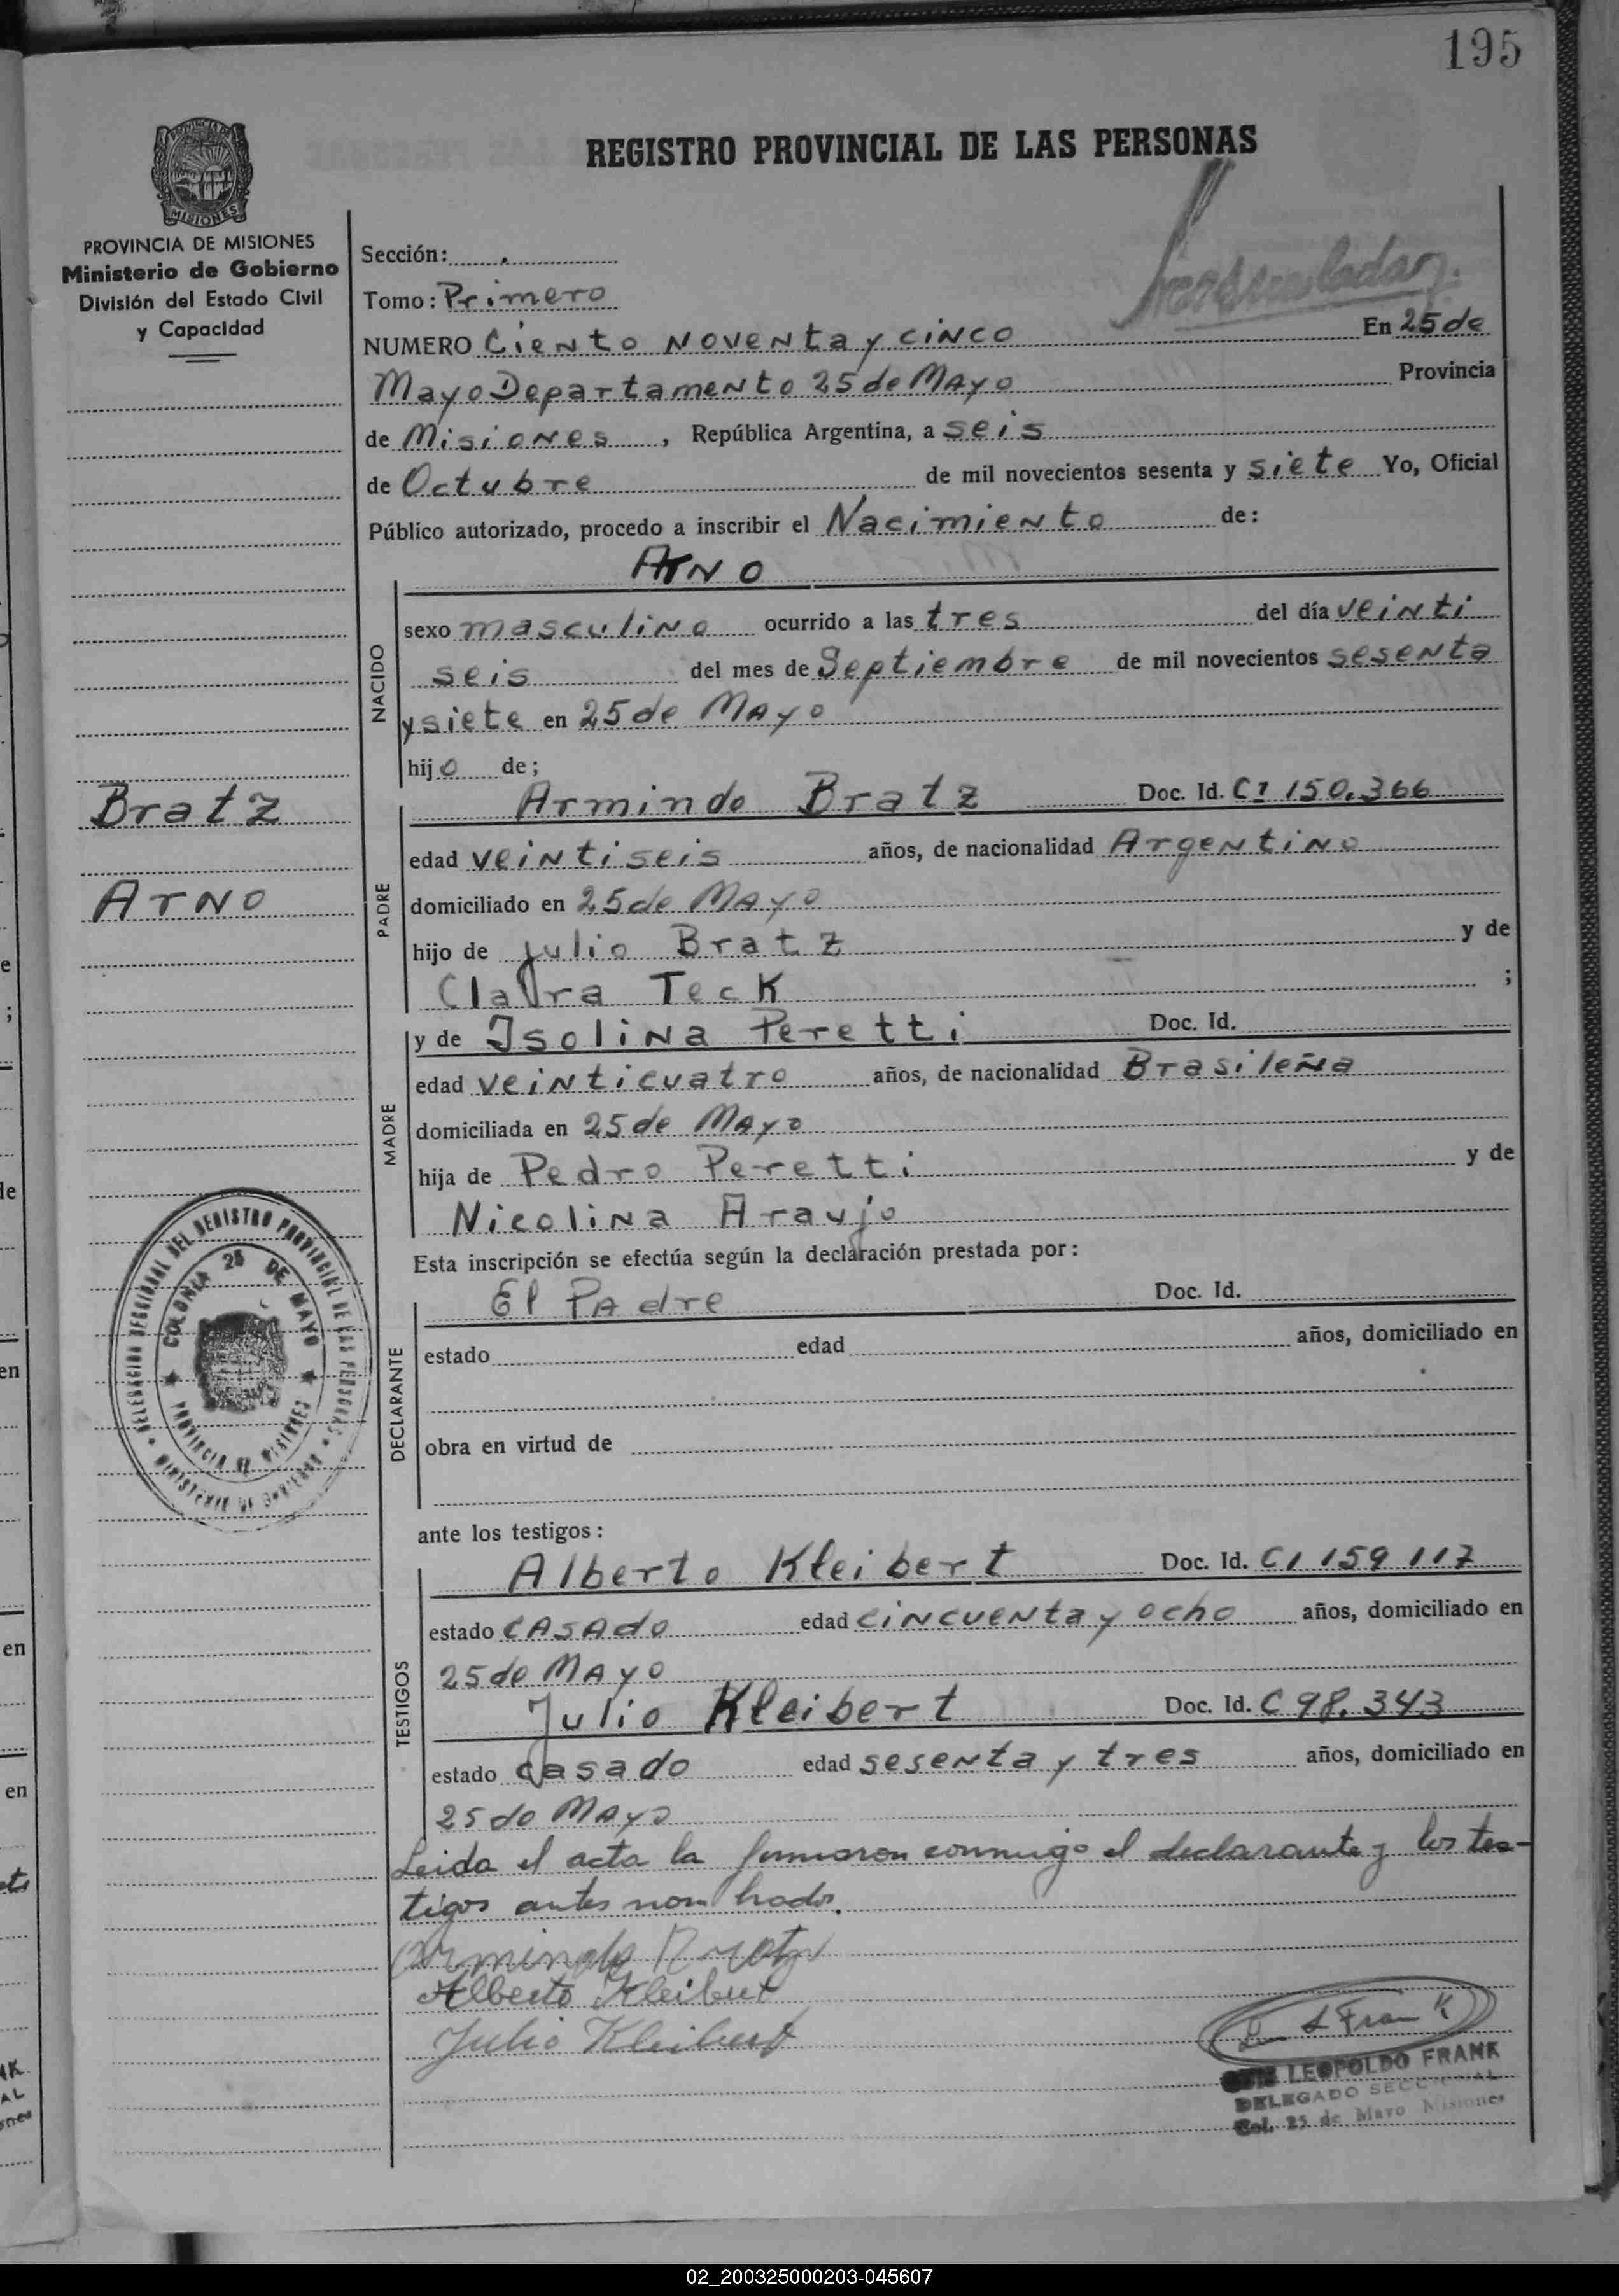 195
REGISTRO PROVINCIAL DE LAS PERSONAS
MISIONES
PROVINCIA DE MISIONES
Ministerio de Gobierno
División del Estado Civil
y Capacidad
Sección:
Tomo: Primero
NUMERO Ciento noventa y cinco En 25 de
Mayo Departamento 25 de Mayo Provincia
de Misiones, República Argentina, a seis
de Octubre de mil novecientos sesenta y siete Yo, Oficial
Público autorizado, procedo a inscribir el Nacimiento de:
Arno
NACIDO
sexo masculino ocurrido a las tres del día veinti
seis del mes de Septiembre de mil novecientos sesenta
y siete en 25 de Mayo
hijo de;
Bratz
Arno
PADRE
Armindo Bratz Doc. Id. CI 150.366
edad veintiseis años, de nacionalidad Argentino
domiciliado en 25 de Mayo
hijo de Julio Bratz y de
Clara Teck ;
MADRE
y de Isolina Peretti Doc. Id.
edad veinticuatro años, de nacionalidad Brasileña
domiciliada en 25 de Mayo
hija de Pedro Peretti y de
Nicolina Araujo
Esta inscripción se efectúa según la declaración prestada por:
DECLARANTE
El Padre Doc. Id.
estado edad años, domiciliado en
obra en virtud de
DELEGACION SECCIONAL DEL REGISTRO PROVINCIAL DE LAS PERSONAS
COLONIA 25 DE MAYO
PROVINCIA DE MISIONES
MINISTERIO DE GOBIERNO
ante los testigos:
TESTIGOS
Alberto Kleibert Doc. Id. CI 159 117
estado casado edad cincuenta y ocho años, domiciliado en
25 de Mayo
Julio Kleibert Doc. Id. C 98.343
estado casado edad sesenta y tres años, domiciliado en
25 de Mayo
Leida el acta la firmaron conmigo el declarante y los tes-
tigos antes nombrados.
Armindo Bratz
Alberto Kleibert
Julio Kleibert
L Frank
LEOPOLDO FRANK
DELEGADO SECCIONAL
Col. 25 de Mayo Misiones
02_200325000203-045607